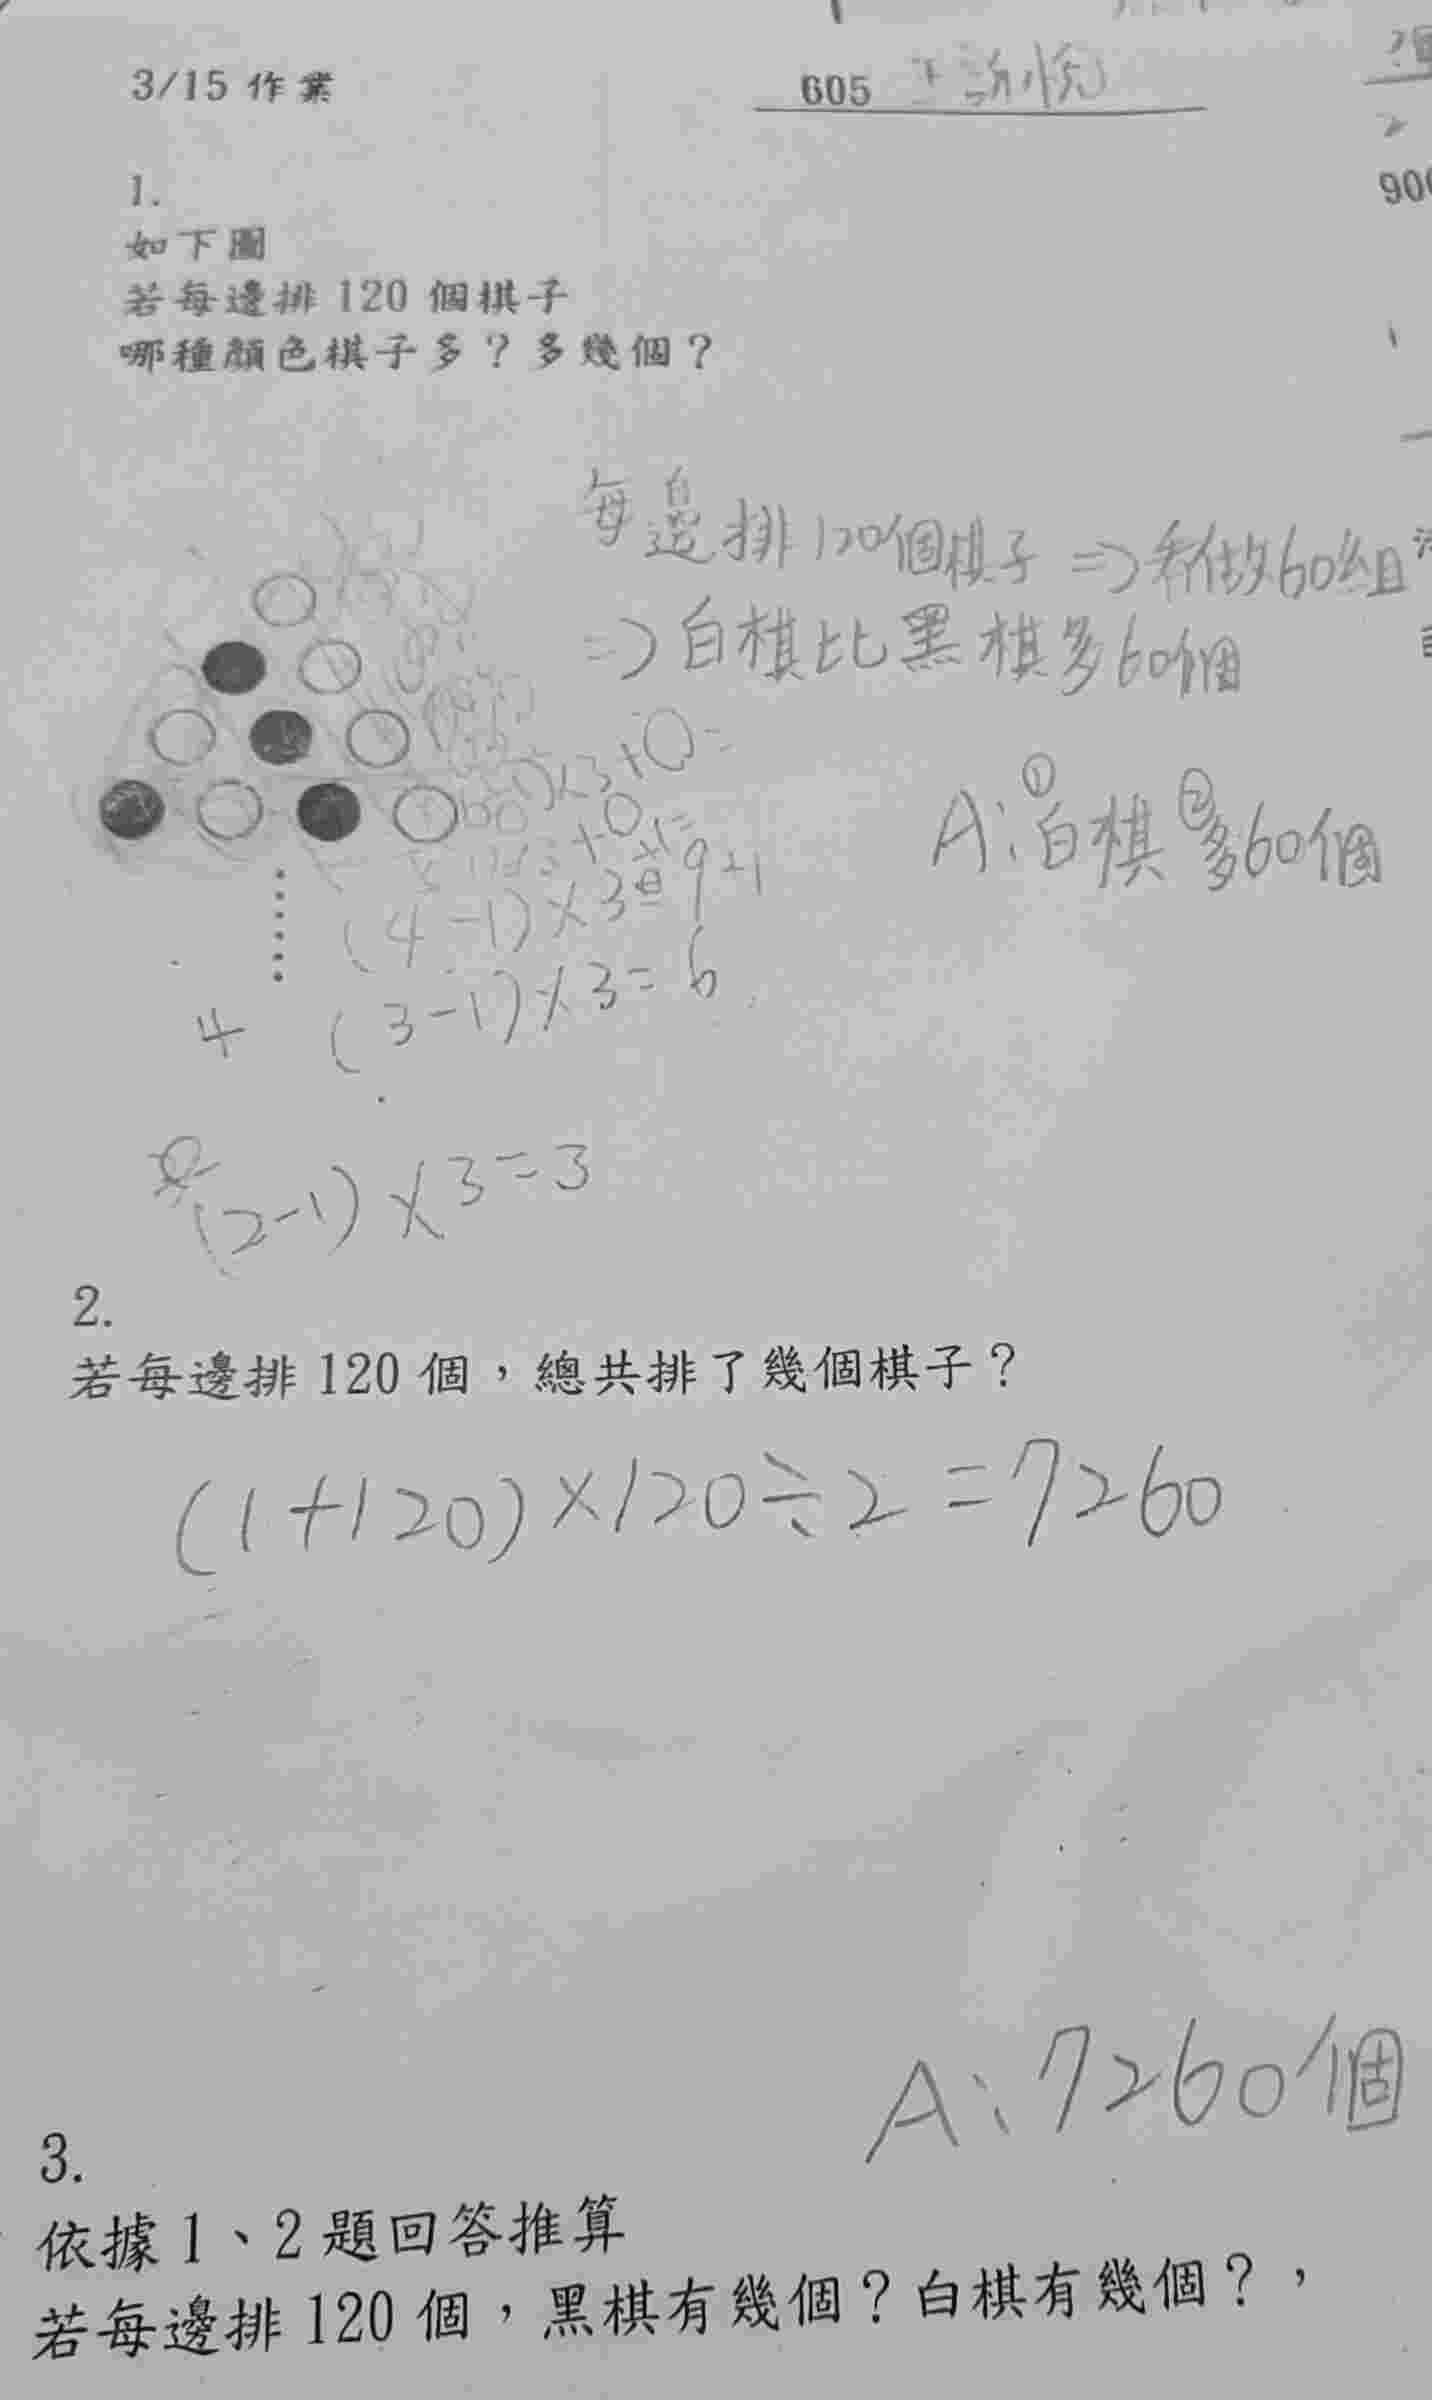 3/15 作業
605
1.
如下圖
若每邊排 120 個棋子
哪種顏色棋子多？多幾個？
每邊排120個棋子 => 看做60組
=> 白棋比黑棋多60個
A: ①白棋 ②多60個
(4-1)×3=9+1
4 (3-1)×3=6
(2-1)×3=3
2.
若每邊排 120 個，總共排了幾個棋子？
(1+120)×120÷2=7260
A: 7260個
3.
依據 1、2 題回答推算
若每邊排 120 個，黑棋有幾個？白棋有幾個？，